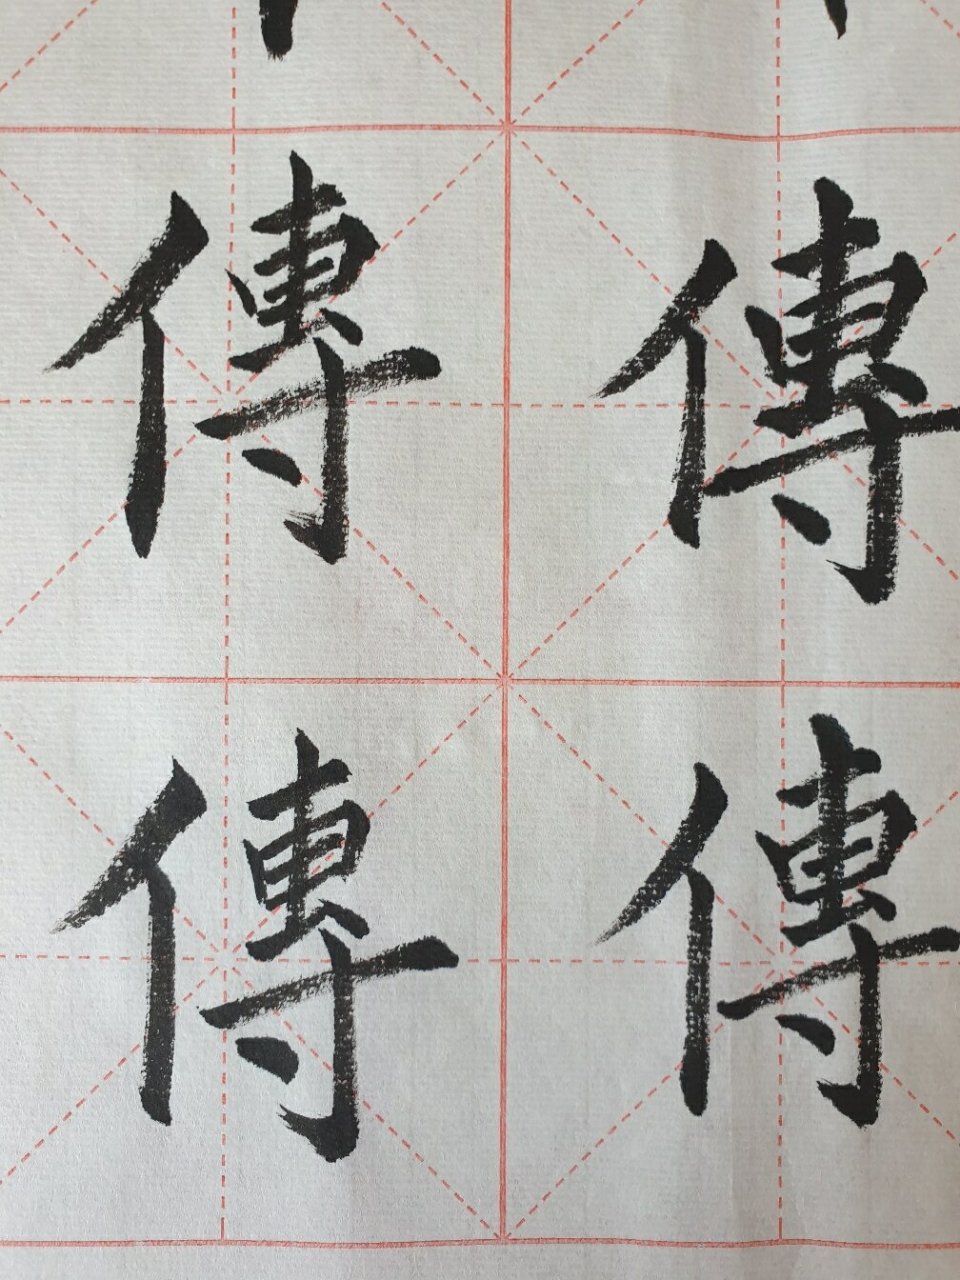 傳傳
傳傳